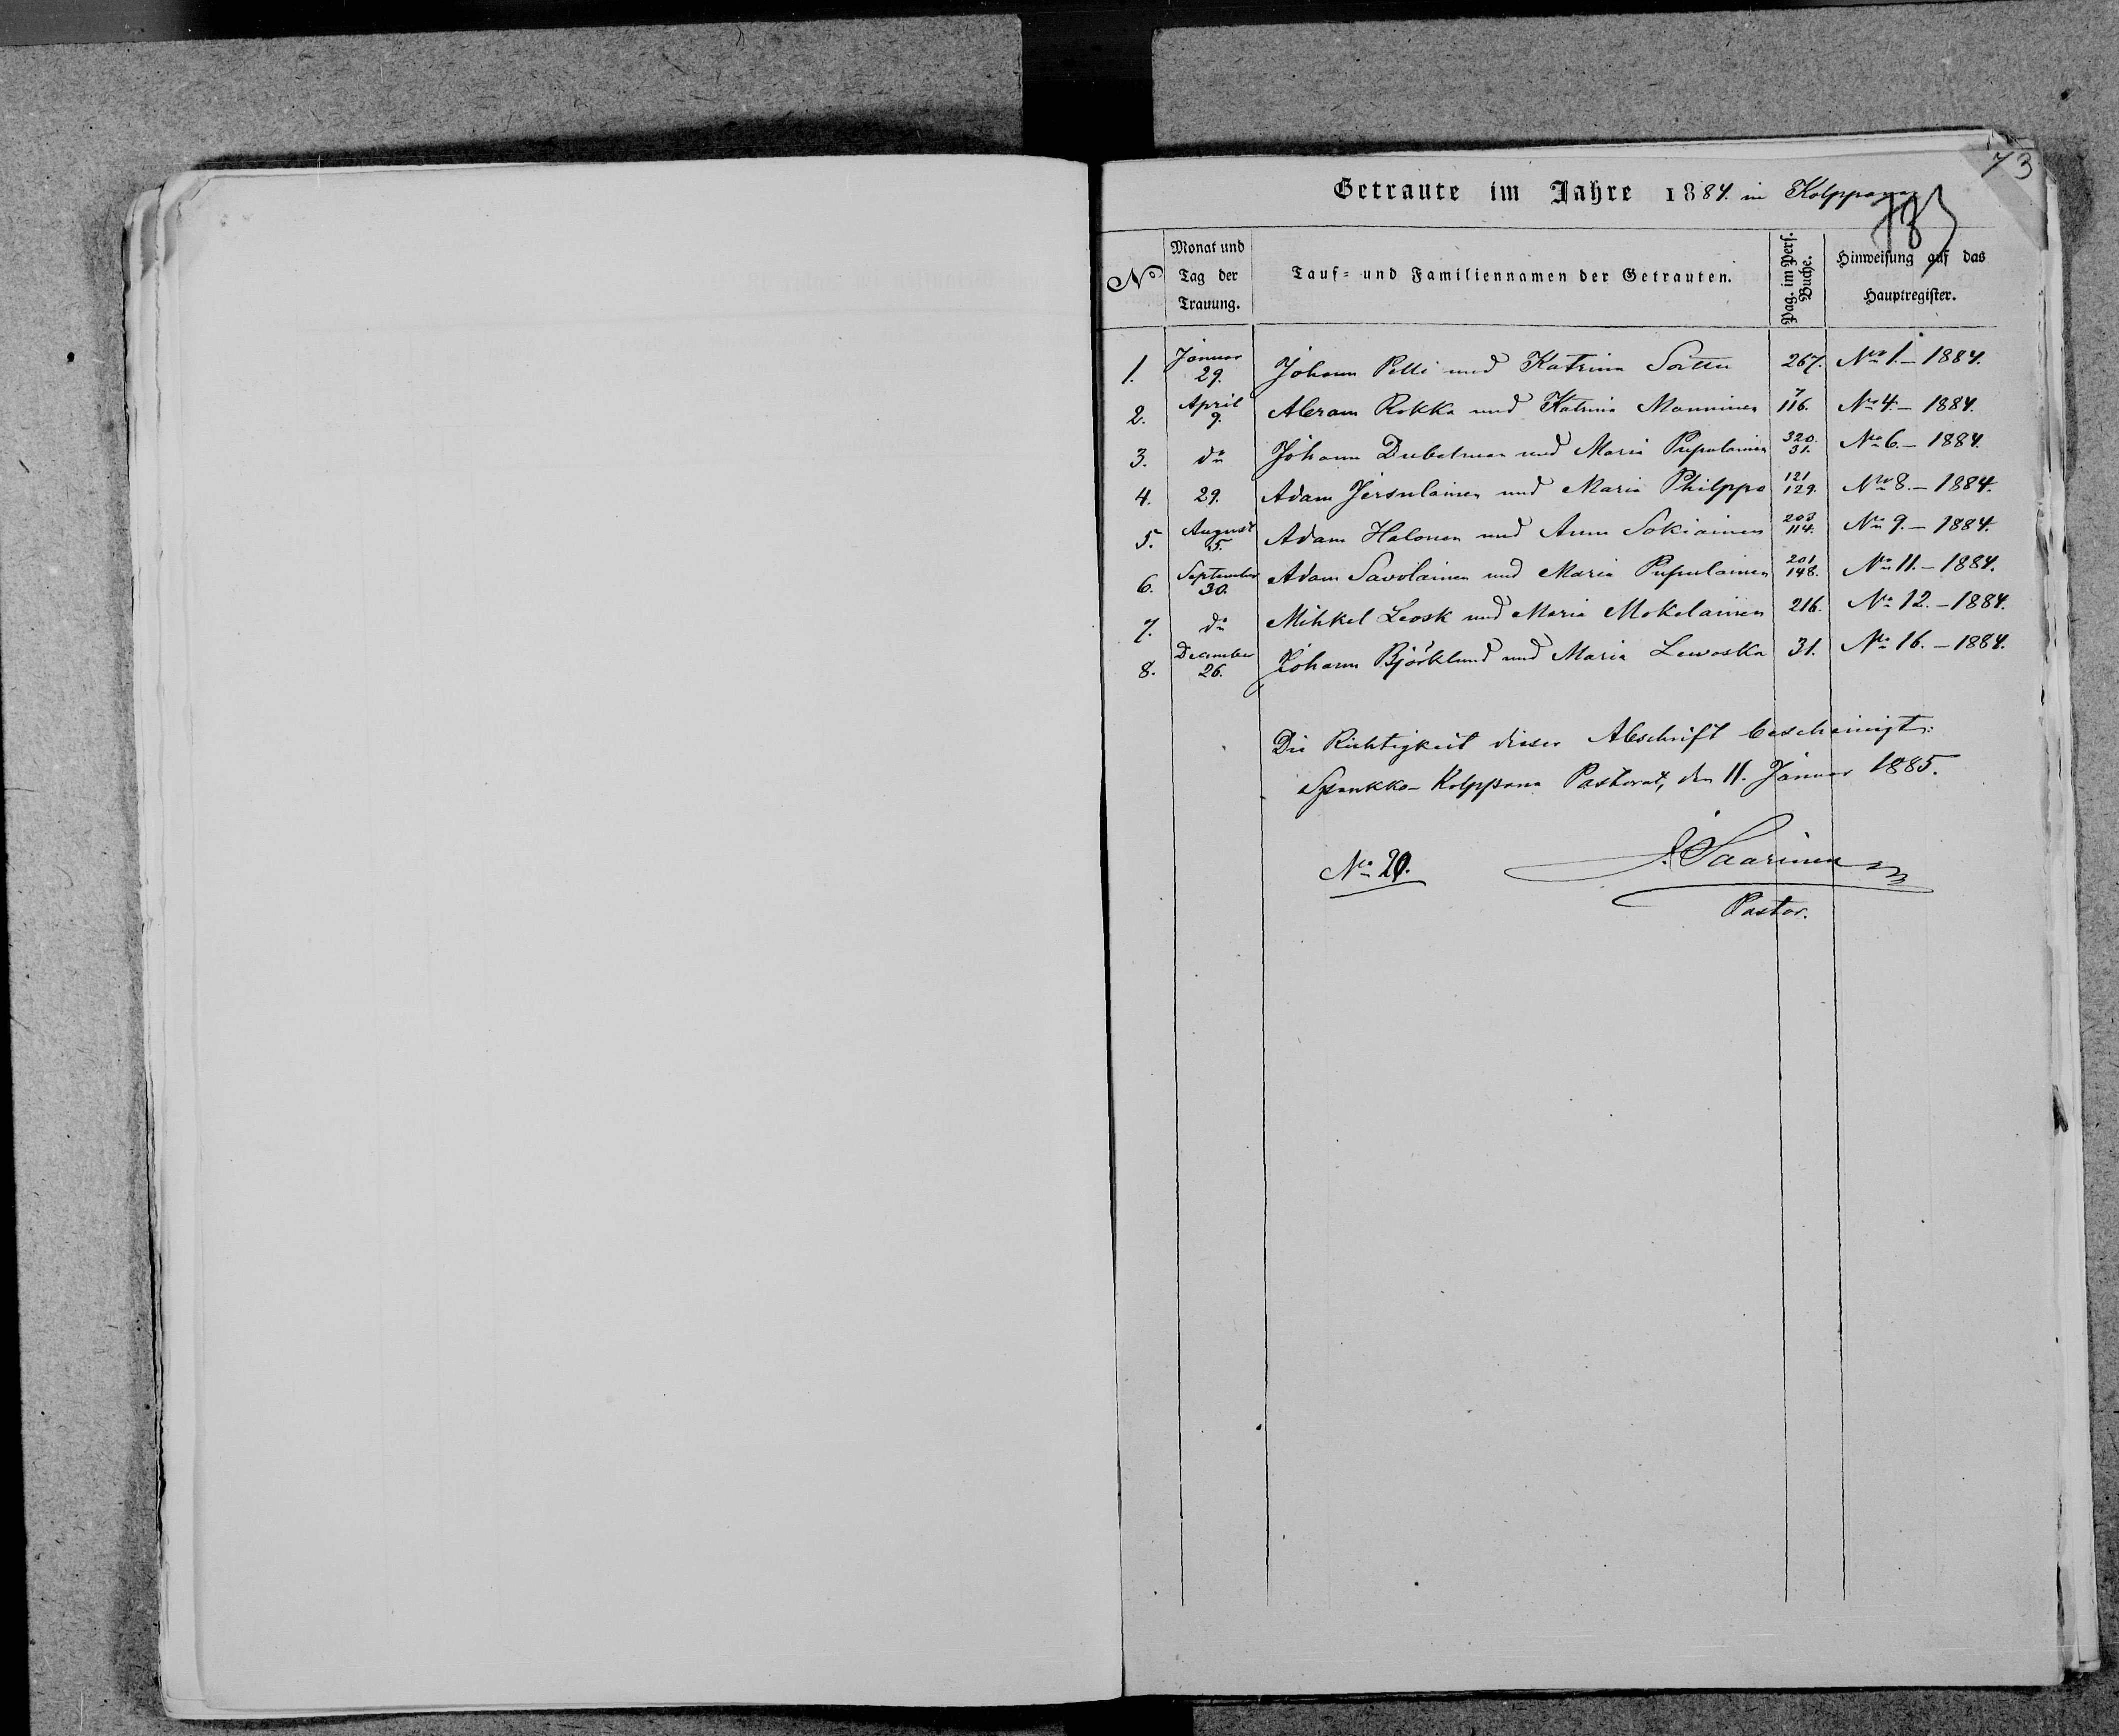 73
Getraute im Jahre 1884. in Kolppana
N° Monat und Tag der Trauung. Tauf- und Familiennamen der Getrauten. Pag. im Pers. Buche. Hinweisung auf das Hauptregister.
1. Januar 29. Johann Pelli und Katrina 267. No 1.– 1884.
2. April 9. Abram Rokka und Katrina Manninen 7 116. No 4.– 1884.
3. do Johann Dubelman und Maria Pupulainen 320. 31. No 6.– 1884.
4. 29. Adam Jersulainen und Maria Philppo 121 129. No 8.– 1884.
5. August 5. Adam Halonen und Anna Sokiainen 203 114. No 9.– 1884.
6. September 30. Adam Savolainen und Maria Pupulainen 201 148. No 11.– 1884.
7. do Mihkel Leosk und Maria Mokelainen 216. No 12.–1884.
8. December 26. Johann Björklund und Maria Lewoska 31. No 16.–1884.
Die Richtigkeit dieser Abschrift bescheinigt:
Spankko-Kolppana Pastorat, den 11. Januar 1885.
No 20. J. Saarinen
Pastor.